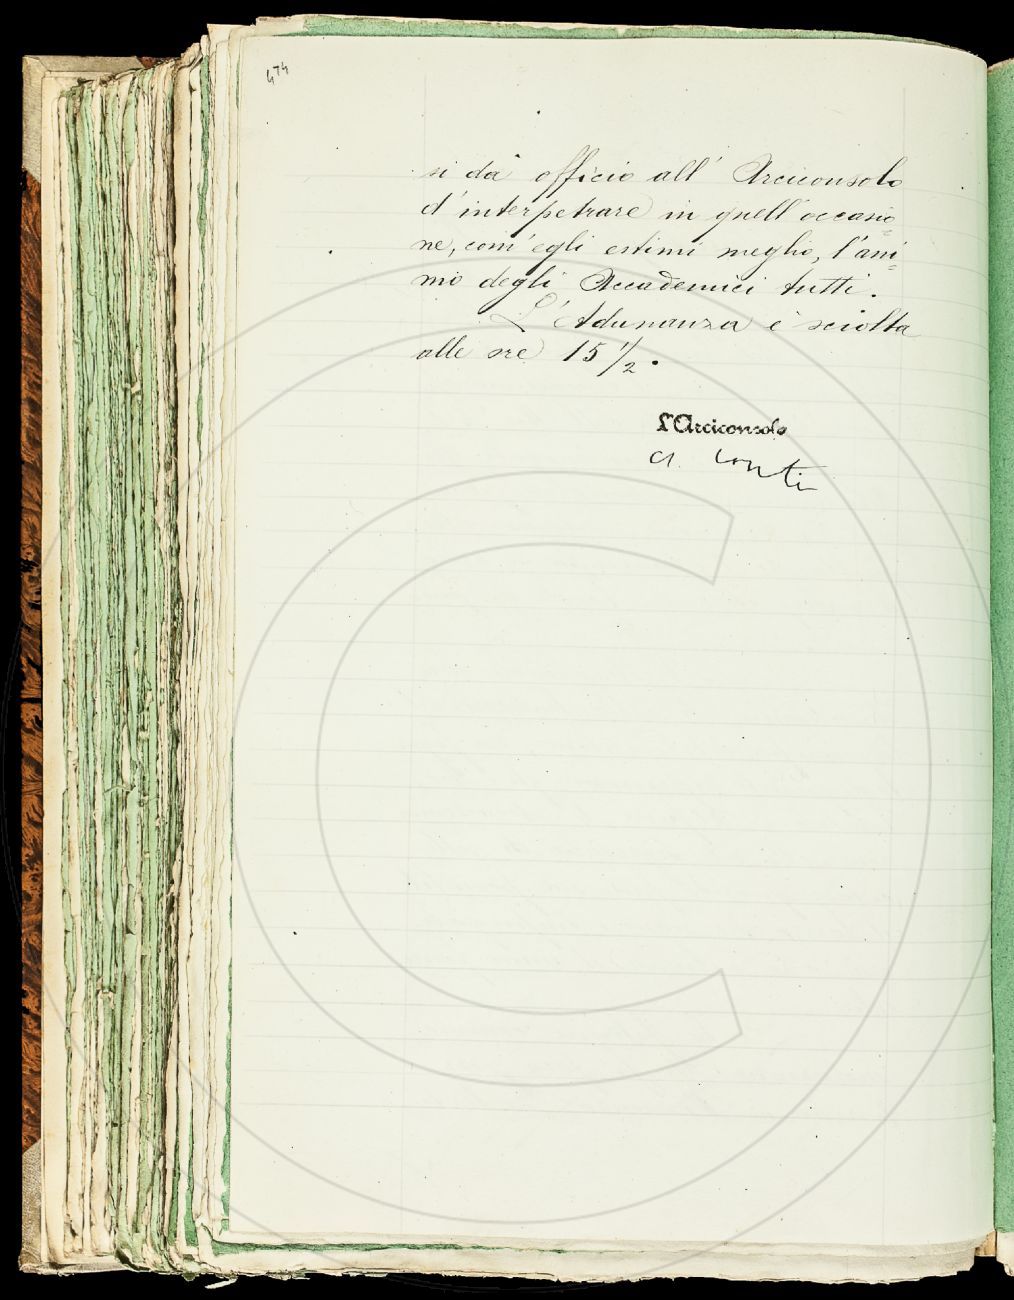 474
si dà officio all' Arciconsolo
d'interpetrare in quell'occasio=
ne, com'egli estimi meglio, l'ani=
mo degli Accademici tutti.
L'Adunanza è sciolta
alle ore 15 1/2.
L'Arciconsolo
A. Conti